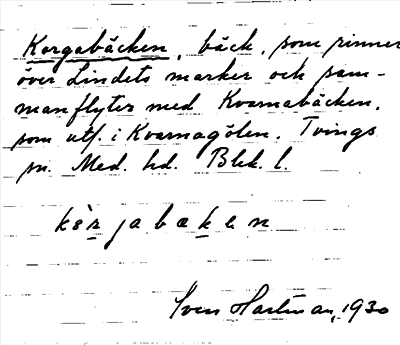 Korgabäcken, bäck, som rinner
över Lindets marker och sam-
manflyter med Kvarnabäcken,
som utf. i Kvarnagölen. Tvings
sn. Med. hd. Blek. l.
Sven Hartman, 1930